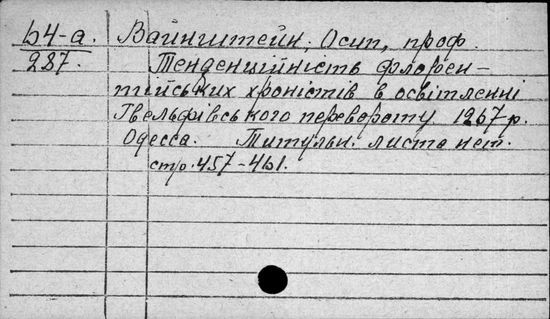 Ь4-а. Вайнштейн, Осип, проф.
287. Тенденційність флорен-
тійських хроністів в освітленні
Гвельфівського перевороту 1267 р.
Одесса. Титульн. листа нет.
стр. 457-461.